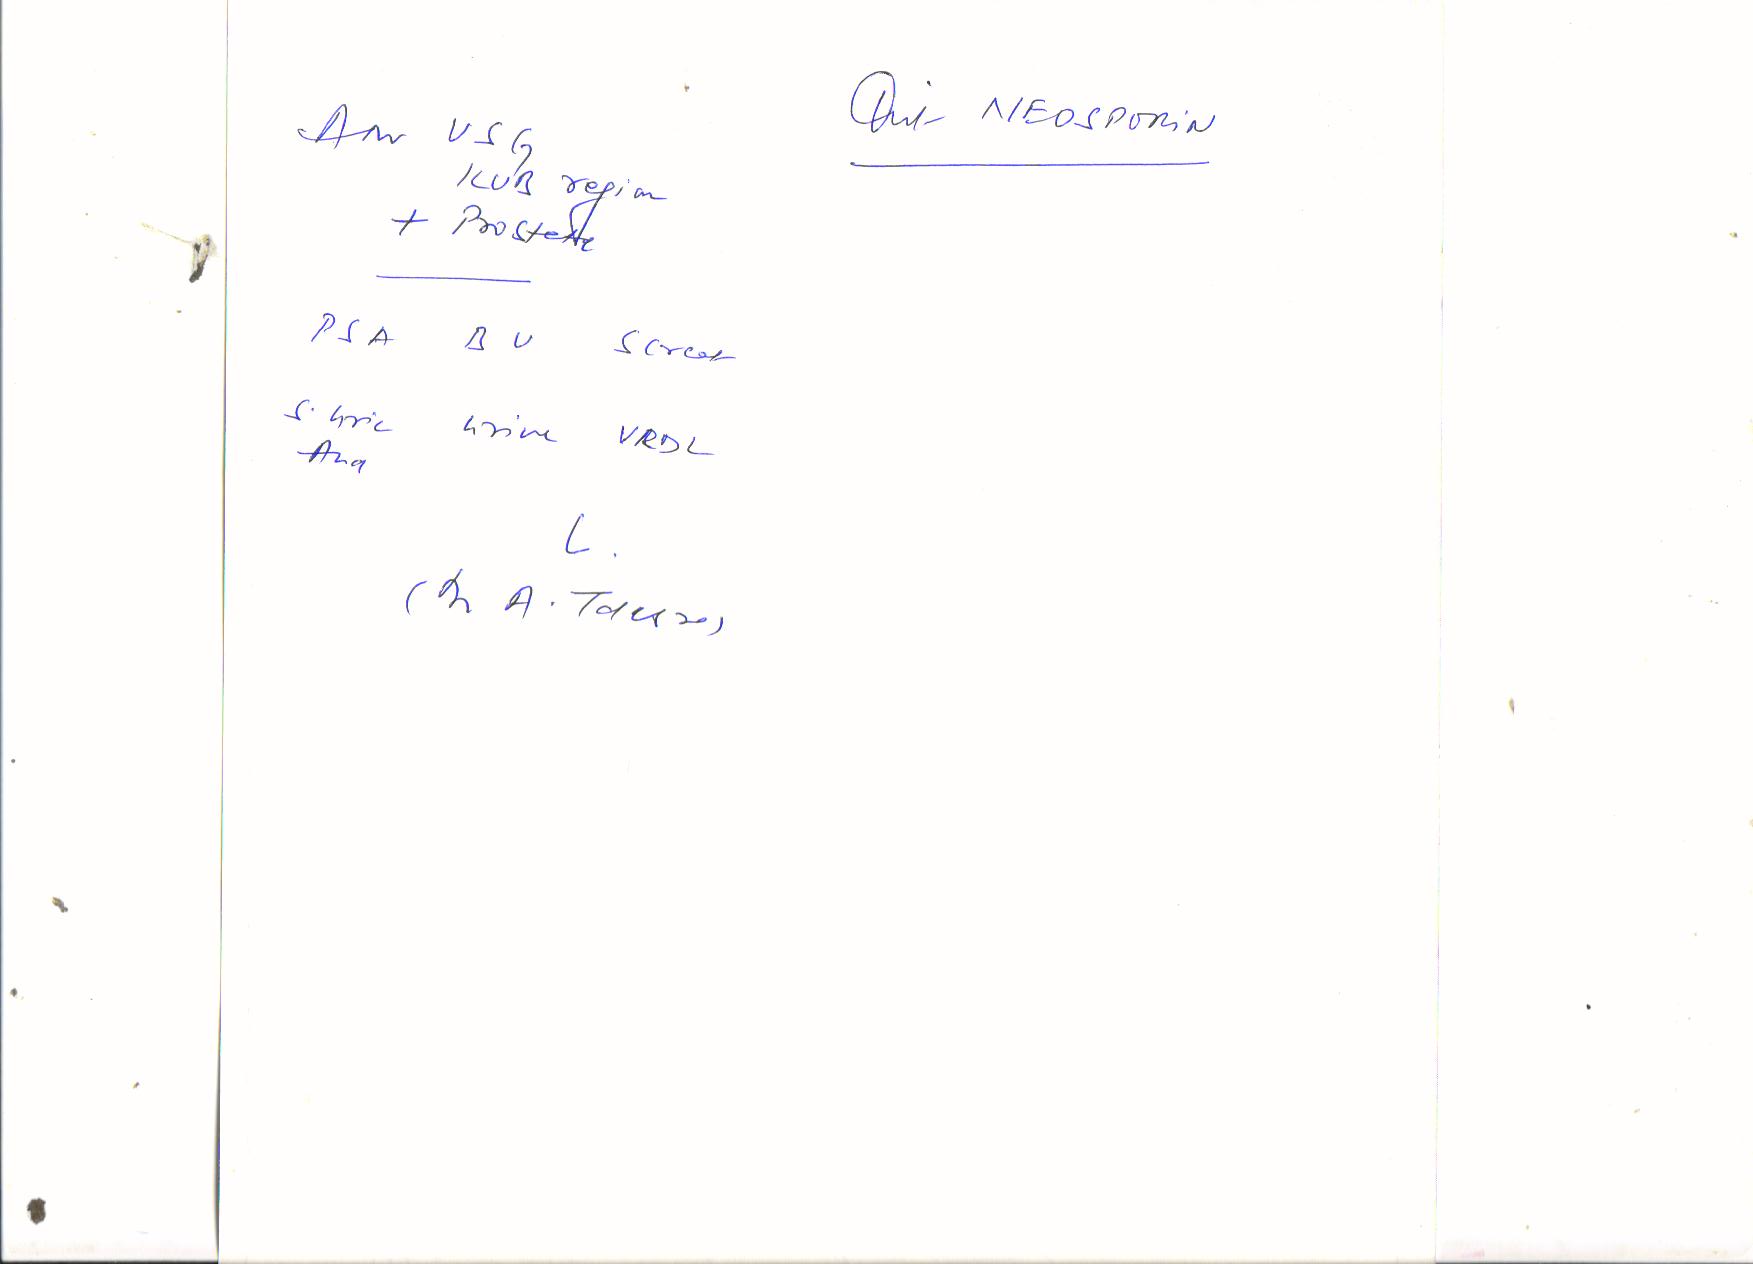 Adv USG
KUB region
+ Prostate
Oint NEOSPORIN
PSA BU S Creat
S. Uric Urine VRDL
L.
(Dr A.